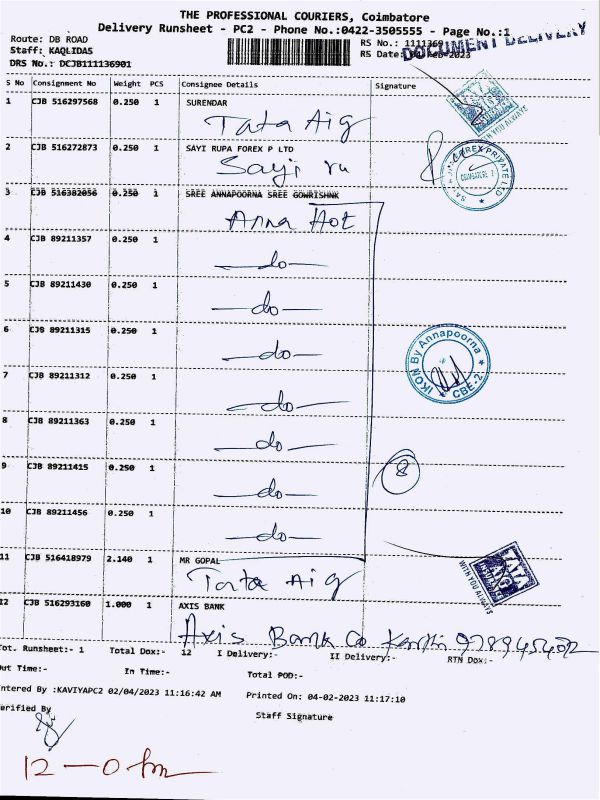 THE PROFESSIONAL COURIERS, Coimbatore
Delivery Runsheet - PC2 - Phone No.:0422-3505555 - Page No.:1
Route: DB ROAD
Staff: KAQLIDAS
DRS No.: DCJB111136901
RS No.: 1111369
RS Date: Feb-2023
DOCUMENT DELIVERY
S No Consignment No Weight PCS Consignee Details Signature
1 CJB 516297568 0.250 1 SURENDAR
Tata Aig
WITH YOU ALWAYS
2 CJB 516272873 0.250 1 SAYI RUPA FOREX P LTD
Sayi ru
3 CJB 516382056 0.250 1 SREE ANNAPOORNA SREE GOWRISHNK
Anna Hot
4 CJB 89211357 0.250 1
do
5 CJB 89211430 0.250 1
do
6 CJB 89211315 0.250 1
do
IKON By Annapoorna
CBE-2
7 CJB 89211312 0.250 1
do
8 CJB 89211363 0.250 1
do
9 CJB 89211415 0.250 1
do
8
10 CJB 89211456 0.250 1
do
11 CJB 516418979 2.140 1 MR GOPAL
Tata Aig
TATA
INSURANCE
WITH YOU ALWAYS
12 CJB 516293160 1.000 1 AXIS BANK
Axis Bank Co
Tot. Runsheet:- 1 Total Dox:- 12 I Delivery:- II Delivery:- RTN Dox:-
Out Time:- In Time:- Total POD:-
Entered By :KAVIYAPC2 02/04/2023 11:16:42 AM Printed On: 04-02-2023 11:17:10
Verified By
Staff Signature